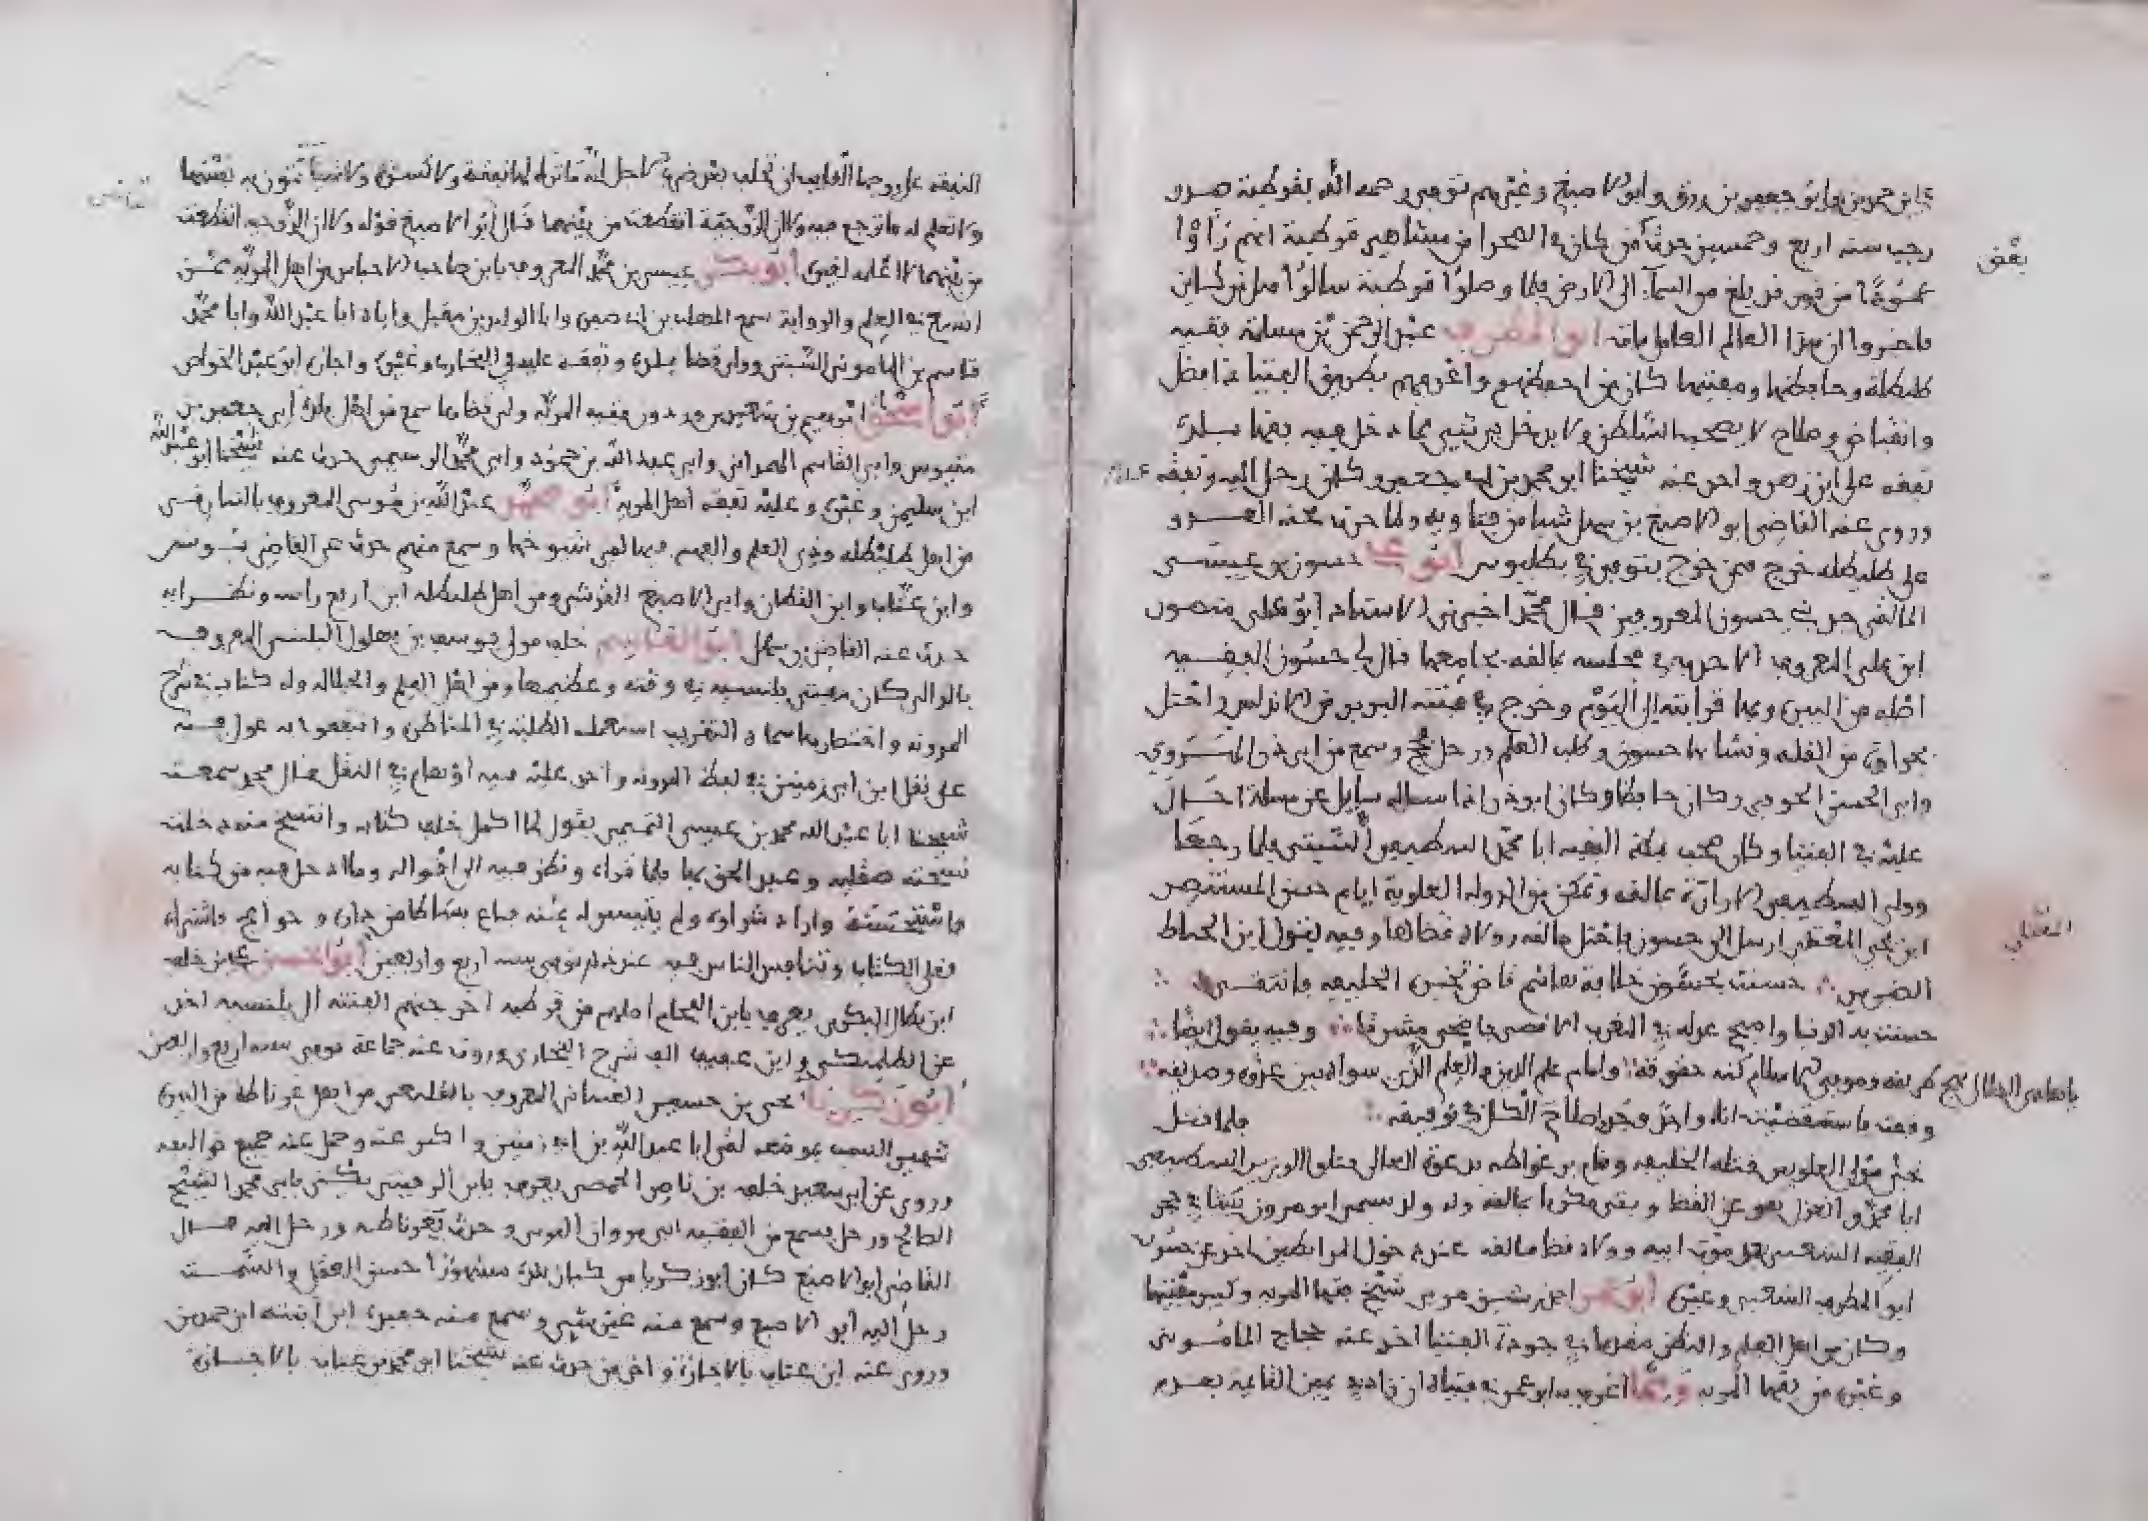 ابن حمدين وابو جعفر بن رزق وابو الاصبغ وغيرهم توفي رحمه الله بقرطبة صدر
رجب سنه اربع وخمسين حدث من كان في الصحرا من مشاهير قرطبة انهم رأوا
بعض
عمودًا من نور قد بلغ من السمآ الى الارض فلما وصلوا قرطبة سالوا
فاخبروا ان هذا العالم العامل مات ابو المطرف عبد الرحمن بن سلمة فقيه
طليطلة وحافظها ومفتيها كان من احفظهم واعرفهم بطريق الفتيا ذا فضل
وانقباض وصلاح لا يصحب السلطان ولا يدخل في شيء مما دخل فيه فقها بلده
تفقه على ابن زهر واخذ عنه شيخنا ابو محمد بن ابي جعفر وكان رحل اليه وتفقه عنده
وروى عنه القاضي ابو الاصبغ بن سهل شيا من فتاويه ولما حدث عنه العدو
على طليطله خرج فيمن خرج فتوفي في بطليوس ابو علي حسون بن عيسى
المالقي جد بني حسون المعروفين قال محمد اخبرني الاستاذ ابو علي منصور
ابن علي المعروف الاحدب في مجلسه بمالقه بجامعها قال لي حسون الفقيه
اصله من البيرة وبها قرابته الى اليوم وخرج في فتنة البربر من الاندلس واحتل
بجواق من القله ونشا بها حسون وطلب العلم ورحل فحج وسمع من ابي ذر الهروي
وابي الحسن الحوفي وكان حافظا وكان ابو ذر اذا ساله سايل عن مسلة احال
عليه في الفتيا وكان صحب بمكة الفقيه ابا محمد السطيفي الشيتي فلما رجعا
وولي السطيفي الوزارة بمالقه وتمكن من الدوله العلوية ايام حسن المستنصر
ابن يحيى المعتلي ارسل الى حسون فاحتل مالقه وولاه قضاها وفيه يقول ابن الحناط
المعتلي
الضرير ∴ حسنت بحسون خلافة هاشم قاض تخير الخليفه وانتقى ∴
حسنت به الدنيا واصبح عدله في المغرب الاقصى يا يحيى مشرقا ∴ وفيه يقول ايضا ∴
وامام علم الدين والعلم الذي سواه بين عدوه وصديقه ∴
وقعت فاستقضيت اذا واحد وجد اصلاح الكل في توفيقه ∴ فلما فضل
نجز مولى العلويين قتله الخليفه وقام بن عواطه بدعوة العالي قتلوا الوزير السطيفي
ابا محمد وانعزل هو عن القضا وبقي مكرما بمالقه وله ولد يسمى ابو مروان يكنا في حجر
الفقيه الشعبي بعد موت ابيه وولاه قضا مالقه عند دخول المرابطين اخذ عن حسون
ابو المطرف الشعبي وغيره ابو عمر احمد بن رشيق مر بي شيخ فقها المريه وكبير مفتيها
وكان من اهل العلم والنظر مقدما في جودة الفتيا اخذ عنه حجاج الماموني
وغيره من فقها المريه ومما اغرب به ابو عمر في فتياه ان زاد في يمين القايمه بعدم
النفقه على زوجها الغايب ان تحلف بعد ضرب الاجل انه ما ترك لها نفقة ولا كسوة ولا شيا تمون به نفسها
ولا تعلم له مال ترجع فيه ولا ان الزوجية انقطعت من بينهما قال ابو الاصبغ قوله ولا ان الزوجيه انقطعت
من بينهما لا اعلمه لغيره ابو بكر عيسى بن محمد المعروف بابن صاحب الاحباس من اهل المريه ممن
اتسع في العلم والرواية سمع المهلب بن ابي صفرة وابا الوليد بن مقبل واباه ابا عبد الله وابا محمد
قاسم بن الماموني الشيتي وولي قضا بلده وتفقه عليه في البخاري وغيره واجازه ابو عمر الخواص
ابو اسحق ابرهيم بن سعيد بن ورد ور فقيه المريه وولي قضاها سمع من اهل بلده ابي جعفر بن
مغيوس وابي القاسم المهراني وابي عبد الله بن حمود وابي محمد الوسيمي حدث عنه شيخنا ابو عبد الله
ابن سليمن وغيره وعليه تفقه اهل المرية ابو محمد عبد الله بن موسى المعروف بالشارقي
من اهل طليطله وذوي العلم والفهم فيها لقي شيوخها وسمع منهم حدث عن القاضي يونس
وابن عتاب وابن القطان وابي الاصبغ القرشي ومن اهل طليطله ابن ارفع راسه ونظرايه
حدث عنه القاضي بن سهل ابو القاسم خلف مولى يوسف بن بهلول البلنسي المعروف
بالبرالي كان مفتي بلنسيه في وقته وعظيمها ومن اهل العلم والجلاله وله كتاب في شرح
المدونه واختصارها سماه التقريب استعمله الطلبة في المناظرة وانتفعوا به عول فيه
على نقل ابن ابي زمنين في لفظ المدونه واخذ عليه فيه اوهام في النقل قال محمد سمعت
شيخنا ابا عبد الله محمد بن عيسى التميمي يقول لما اكمل خلف كتابه وانتسخ منه دخلت
نسخته صقليه وعبد الحق بها فلما قراه ونظر فيه الى اقواله وما ادخل فيه من كتابه
فاستحسنه واراد شراه ولم يتيسر له ثمنه فباع بساطا من داره وحوايج فاشتراه
فغلا الكتاب وتنافس الناس فيه عند ذلك توفي سنه اربع واربعين ابو الحسن علي بن خلف
ابن بطال البكري يعرف بابن اللجام اصلهم من قرطبه اخرجتهم الفتنه الى بلنسيه اخذ
عن الطلمنكي وابن عفيف الف شرح البخاري وروى عنه جماعة توفي سنه اربع واربعين
ابو زكريا يحيى بن حسين الغساني المعروف بالقليعي من اهل غرناطة من البيرة
شهير البيت بموضعه لقي ابا عبد الله بن ابي زمنين واكثر عنه وحمل عنه جميع تواليفه
وروى عن ابي سعيد خلف بن ناصر الحمصي يعرف بابن الرفيتي يكنى بابي محمد الشيخ
الصالح ورحل فسمع من الفقيه ابي مروان البوني وحدث بغرناطه ورحل اليه قال
القاضي ابو الاصبغ كان ابو زكريا من كبار بلده مشهورًا حسن العقل والسمت
رحل اليه ابو الاصبغ وسمع منه غير شيء وسمع منه حفيده ابن ابنته ابن حمدين
وروى عنه ابن عتاب بالاجازة واخر من حدث عنه شيخنا ابو محمد بن عتاب بالاجازة